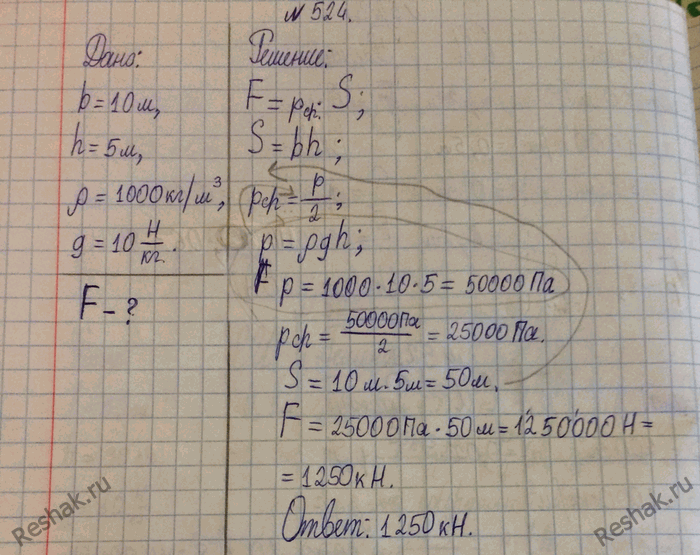 № 524.
Дано:
b = 10 м,
h = 5 м,
ρ = 1000 кг/м³,
g = 10 Н/кг.
F - ?
Решение:
F = pср. S;
S = bh;
pср = p/2;
p = ρgh;
p = 1000 · 10 · 5 = 50000 Па
pср = 50000 Па/2 = 25000 Па.
S = 10 м · 5 м = 50 м,
F = 25000 Па · 50 м = 1250000 Н =
= 1250 кН.
Ответ: 1250 кН.
Reshak.ru
Reshak.ru